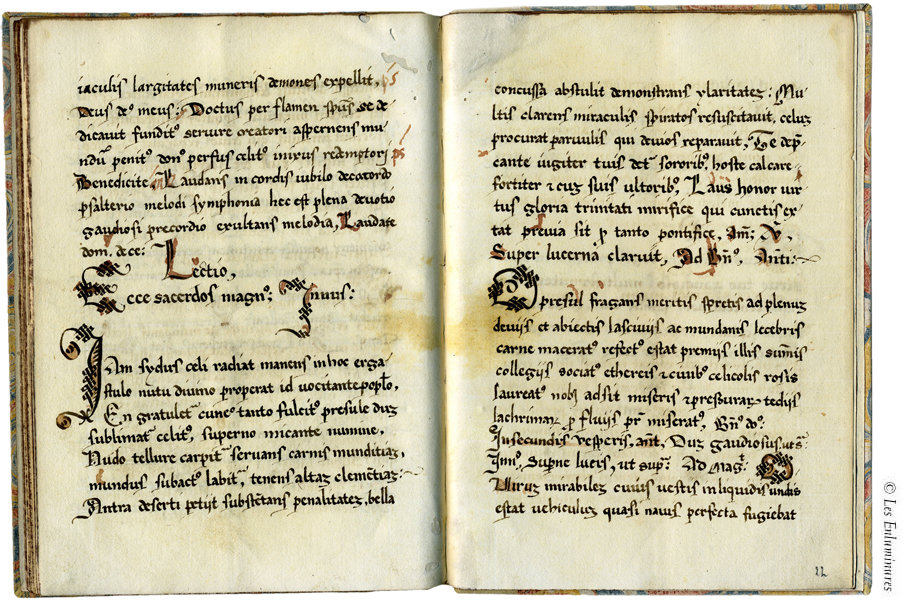 iaculis largitates muneris demones expellit, ps
Deus deꝰ meus: Doctus per flamen spūs se de
dicauit funditꝰ seruire creatori aspernens mu
ndū penitꝰ donꝰ perfus celitꝰ redemptori ps
Benedicite, Laudans in cordis iubilo decacordo
psalterio melodi symphonia hec est plena deuotio
gaudiosi precordio exultans melodia, Laudate
dom. de ce: Lectio,
Ecce sacerdos magnꝰ;
IAm sydus celi radiat manens in hoc erga
stulo nutu diuino properat id uocitante poplo,
En gratulet cunc tanto fulcitꝰ presule duz
sublimat celitꝰ, superno micante numine,
Nudo tellure carpit seruans carnis munditiaz,
mundus subactꝰ labit, tenens altaz clemētiaz:
Antra deserti petijt substētans penalitatez, bella
concussa abstulit demonstrans claritatez: Mu
ltis clarens miraculis spiritos resuscitauit, celuz
procurat paruulis qui deuios reparauit, Te dep̄
cante iugiter tuis det sororibꝰ hoste calcare
fortiter & cuz suis ultoribꝰ, Laus honor uir
tus gloria trinitati mirifice qui cunctis ex
tat preuia sit p tanto pontifice, Am; V.
Super lucernā claruit, Ad Bn̄ꝰ. Anti:
O presul fragans meritis spretis ad plenuz
deuijs et abiectis lasciuijs ac mundanis lecebris
carne maceratꝰ refectꝰ estat premijs illis sumis
collegijs sociatꝰ ethereis & ciuibꝰ celicolis rosis
laureatꝰ nobis adsit miseris & pressuraꝝ tedijs
lachrimaꝝ p fluijs pr̄ miseratꝰ, Bn̄ꝰ dꝰ:
In secundis uesperis, ant, Duz gaudiosus. ut sa
Imꝰ, Supne lucis, ut supa: Ad Mag:
O Uiruz mirabilez cuius uestis in liquidis undis
estat uehiculuz quasi nauis perfecta fugiebat
22
© Les Enluminures